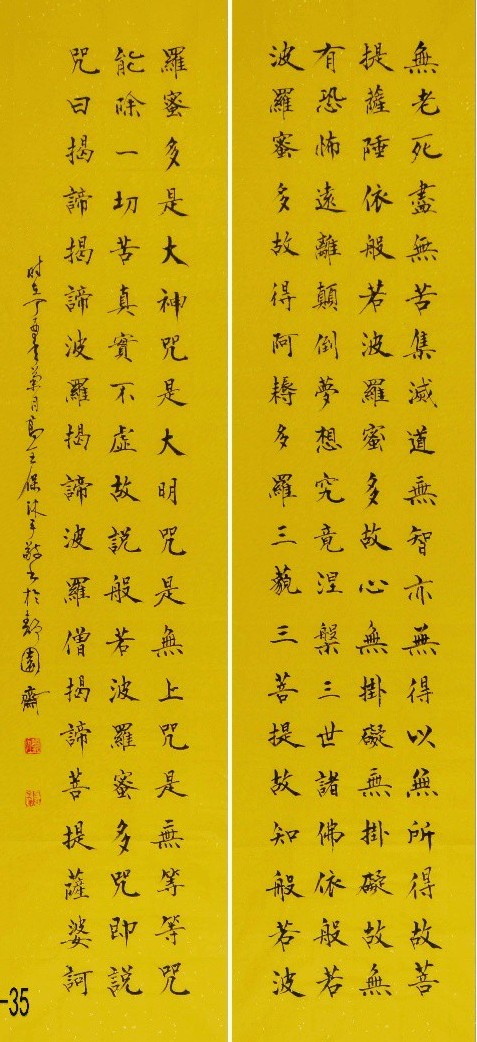 無老死盡無苦集滅道無智亦無得以無所得故菩
提薩陲依般若波羅蜜多故心無掛礙無掛礙故無
有恐怖遠離顛倒夢想究竟涅槃三世諸佛依般若
波羅蜜多故得阿耨多羅三藐三菩提故知般若波
羅蜜多是大神咒是大明咒是無上咒是無等等咒
能除一切苦真實不虛故說般若波羅蜜多咒即說
咒曰揭諦揭諦波羅揭諦波羅僧揭諦菩提薩婆訶
時在丁酉年菊月王保林敬書於園齋
-35